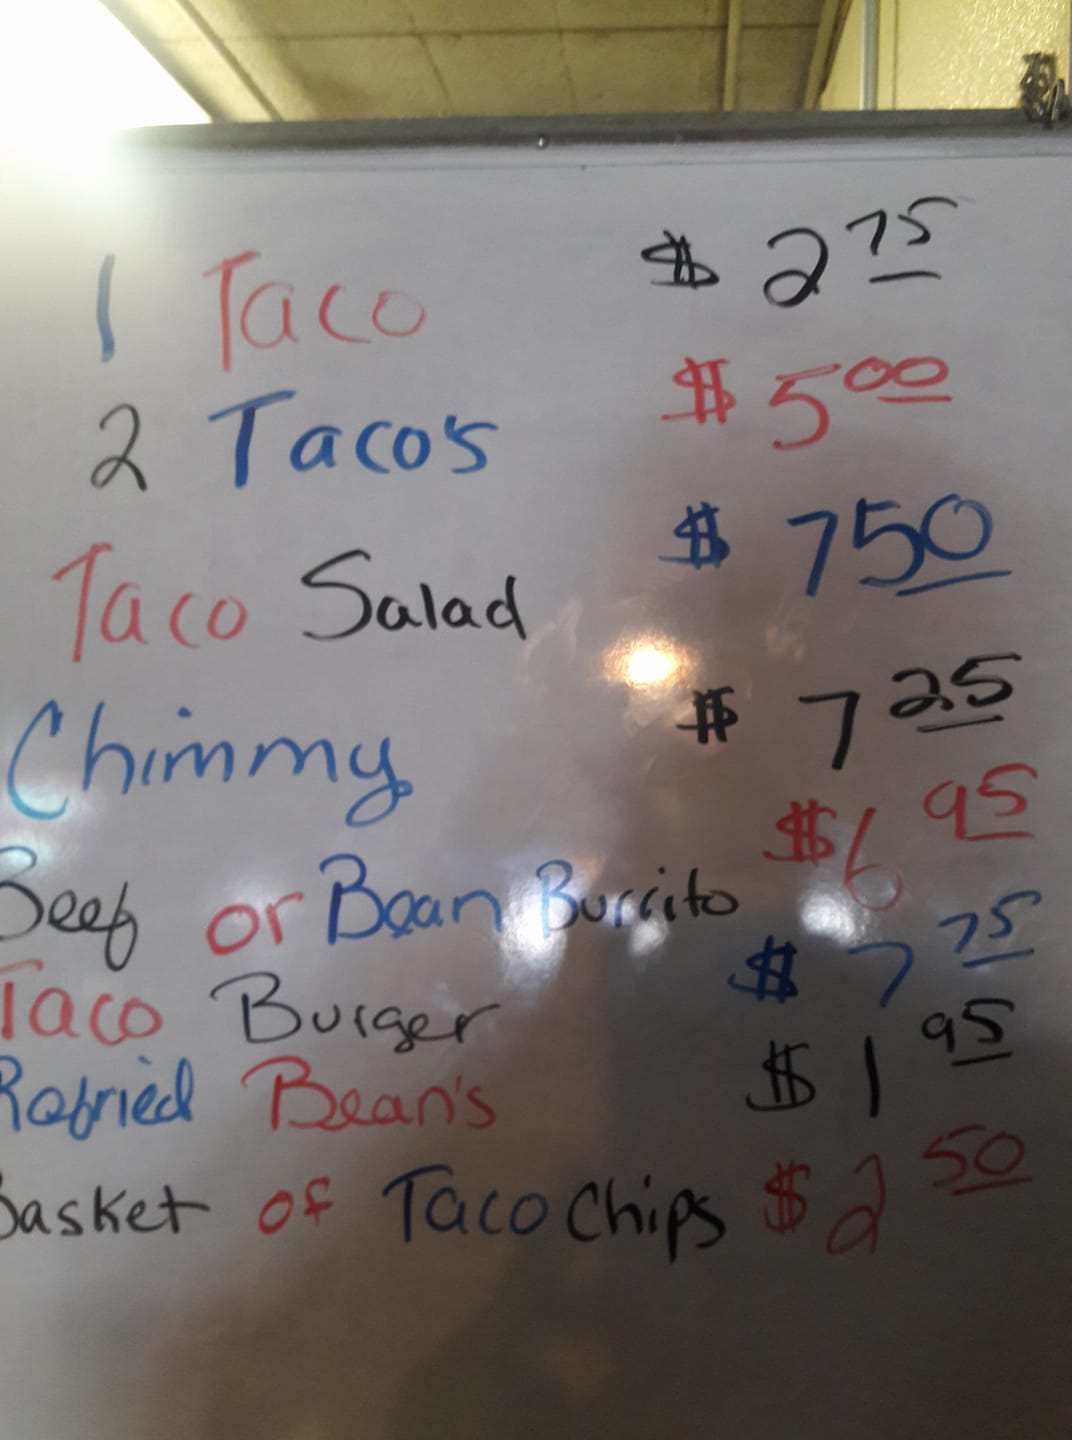 1 Taco $ 2 75
2 Taco's $ 5 00
Taco Salad $ 7 50
Chimmy $ 7 25
Beef or Bean Burrito $ 6 95
Taco Burger $ 7 75
Refried Bean's $ 1 95
Basket of Taco Chips $ 2 50